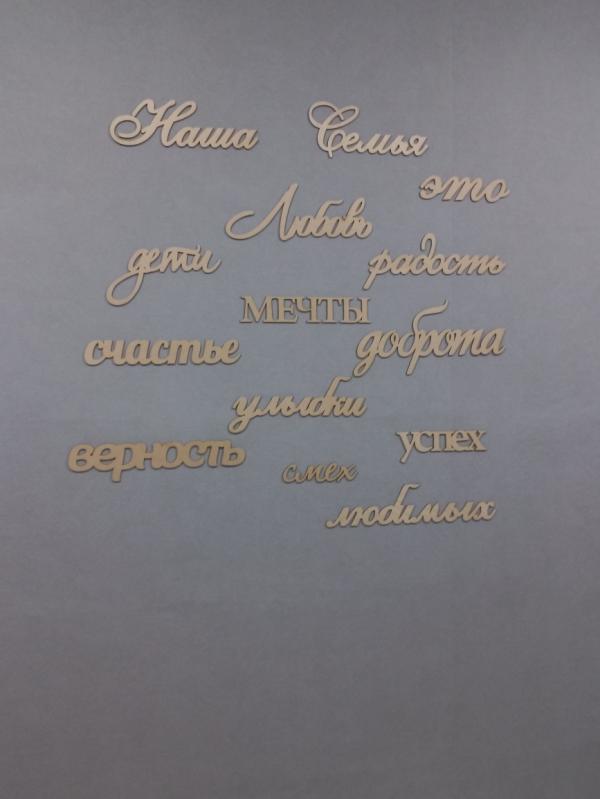 Наша Семья
это
Любовь
дети радость
МЕЧТЫ
счастье доброта
улыбки
верность успех
смех
любимых